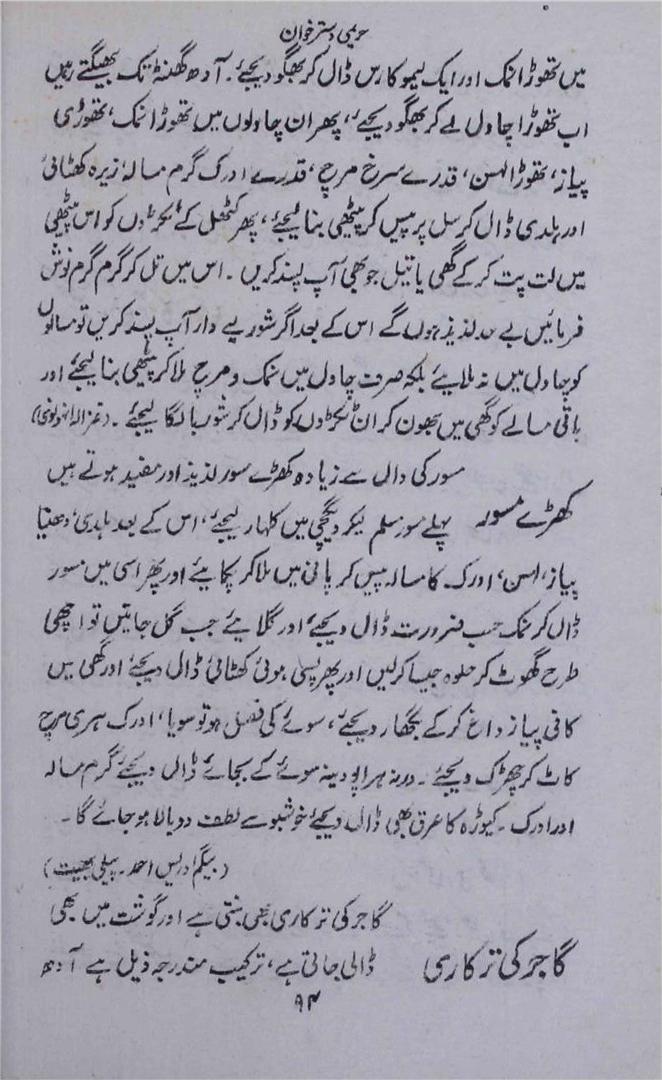 حریمی دسترخوان
میں تھوڑا نمک اور ایک لیمو کا رس ڈال کر بھگو دیجئے۔ آدھ گھنٹہ تک بھیگتے رہیں
اب تھوڑا چاول لے کر بھگو دیجئے، پھر ان چاولوں میں تھوڑا نمک، تھوڑی
پیاز، تھوڑا لہسن، قدرے سرخ مرچ، قدرے ادرک گرم مسالہ زیرہ کھٹائی
اور ہلدی ڈال کر سل پر پیس کر پیٹھی بنا لیجئے، پھر کٹھل کے ٹکڑوں کو اس پیٹھی
میں لت پت کر کے گھی یا تیل جو بھی آپ پسند کریں۔ اس میں تل کر گرم گرم نوش
فرمائیں بے حد لذیذ ہوں گے اس کے بعد اگر شوربے دار آپ پسند کریں تو مسالوں
کو چاول میں نہ ملایئے بلکہ صرف چاول میں نمک و مرچ ملا کر پیٹھی بنا لیجئے اور
باقی مسالے کو گھی میں بھون کر ان ٹکڑوں کو ڈال کر شوربا لگا لیجئے۔
مسور کی دال سے زیادہ کھڑے مسور لذیذ اور مفید ہوتے ہیں
کھڑے مسور پہلے مسور مسلم لیکر دیگچی میں کلہار لیجئے، اس کے بعد ہلدی، دھنیا
پیاز، لہسن، ادرک کا مسالہ پیس کر پانی میں ملا کر پکایئے اور پھر اسی میں مسور
ڈال کر نمک حسب ضرورت ڈال دیجئے اور گلایئے جب گل جائیں تو اچھی
طرح گھوٹ کر حلوہ جیسا کر لیں اور پھر پسی ہوئی کھٹائی ڈال دیجئے اور گھی میں
کافی پیاز داغ کر کے بگھار دیجئے، سوئے کی فصل ہو تو سویا، ادرک ہری مرچ
کاٹ کر چھڑک دیجئے۔ ورنہ ہرا پودینہ سوئے کے بجائے ڈال دیجئے گرم مسالہ
اور ادرک۔ کیوڑہ کا عرق بھی ڈال دیجئے خوشبو سے لطف دوبالا ہو جائے گا۔
(بیگم ادریس احمد۔ پیلی بھیت)
گاجر کی ترکاری بھی بنتی ہے اور گوشت میں بھی
گاجر کی ترکاری ڈالی جاتی ہے، ترکیب مندرجہ ذیل ہے آدھ
۹۴